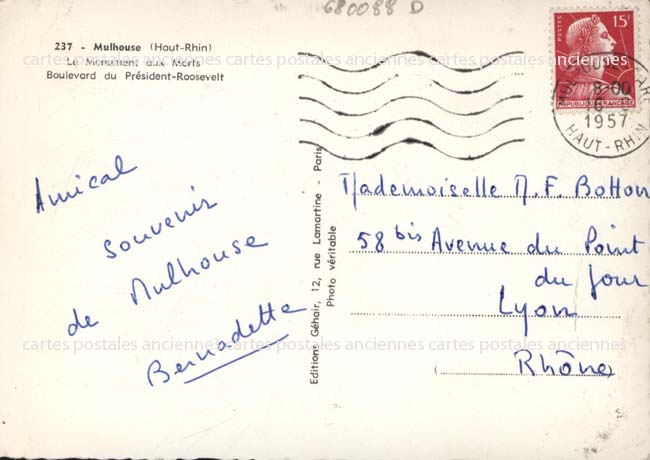 680088 D
237 - Mulhouse (Haut-Rhin)
Le Monument aux Morts
Boulevard du Président-Roosevelt
POSTES
15F
REPUBLIQUE FRANÇAISE
MULHOUSE GARE
8-00
1957
HAUT-RHIN
cartes postales anciennes cartes postales anciennes cartes postales anciennes
Amical
souvenir
de Mulhouse
Bernadette
Editions Géhair, 12, rue Lamartine - Paris
Photo véritable
Mademoiselle M. F. Botton
58 bis Avenue du Point
du Jour
Lyon
Rhône
cartes postales anciennes cartes postales anciennes cartes postales anciennes